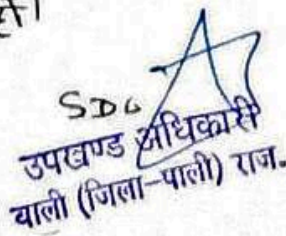 SDO
उपखण्ड अधिकारी
बाली (जिला-पाली) राज.